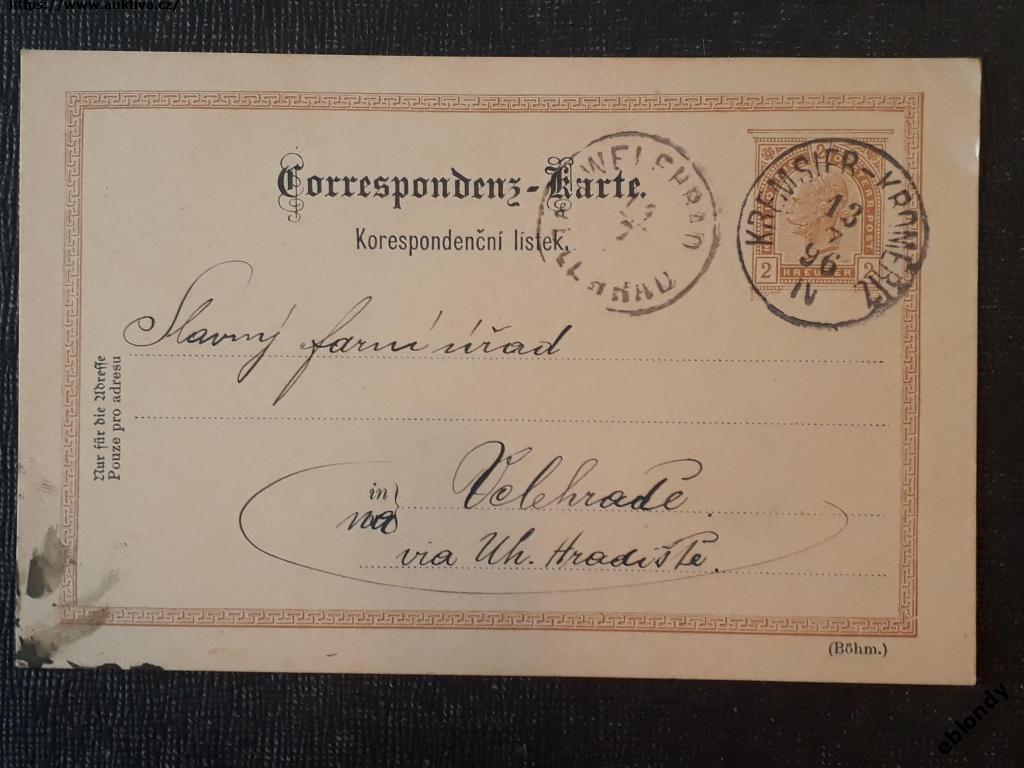 https://www.auktiva.cz/
Correspondenz-Karte.
Korespondenční lístek.
WELEHRAD
KREMSIER-KROMĚŘÍŽ
13
7
96
IV
2 KREUZER 2
Slavný farní úřad
Nur für die Adresse
Pouze pro adresu
in
na
Velehradě
via Uh. Hradiště.
(Böhm.)
eblondy